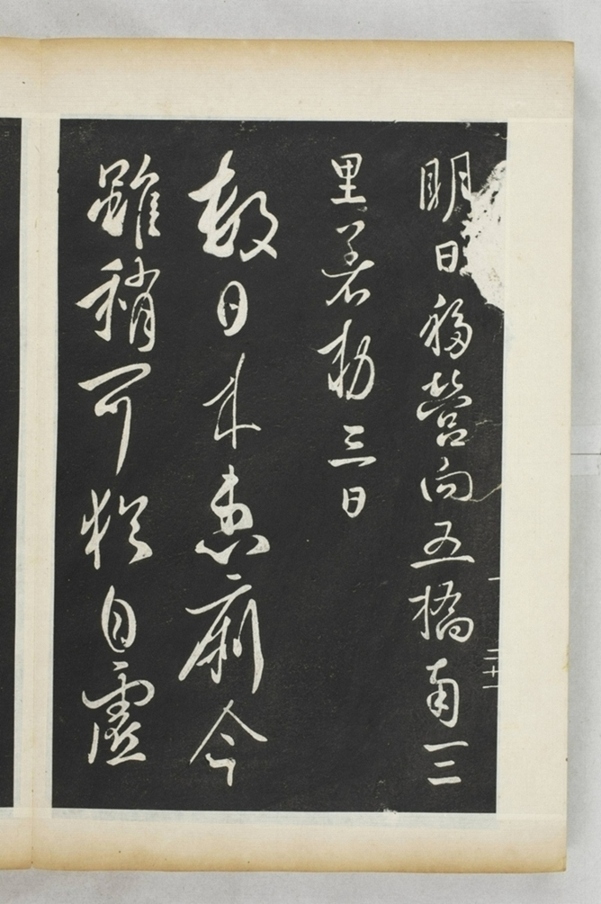 明日移營向五橋南三
里着勅三日
數日来患痢今
雖稍可猶自虛